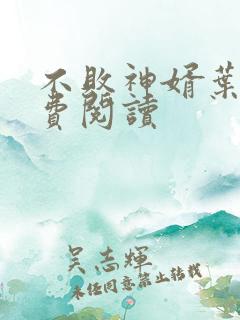 不敗神婿葉
費閱讀
吴志輝
未任同意禁止转载